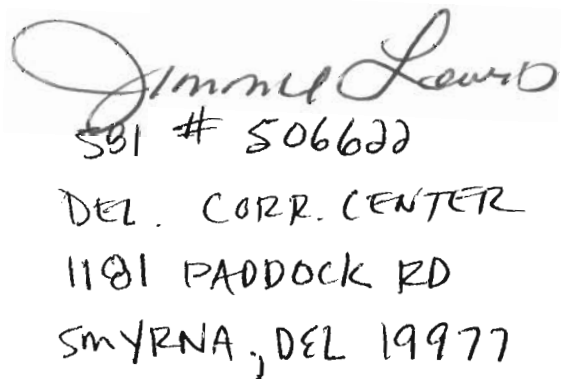 Jimmie Lewis
SBI # 506622
DEL. CORR. CENTER
1181 PADDOCK RD
SMYRNA, DEL 19977